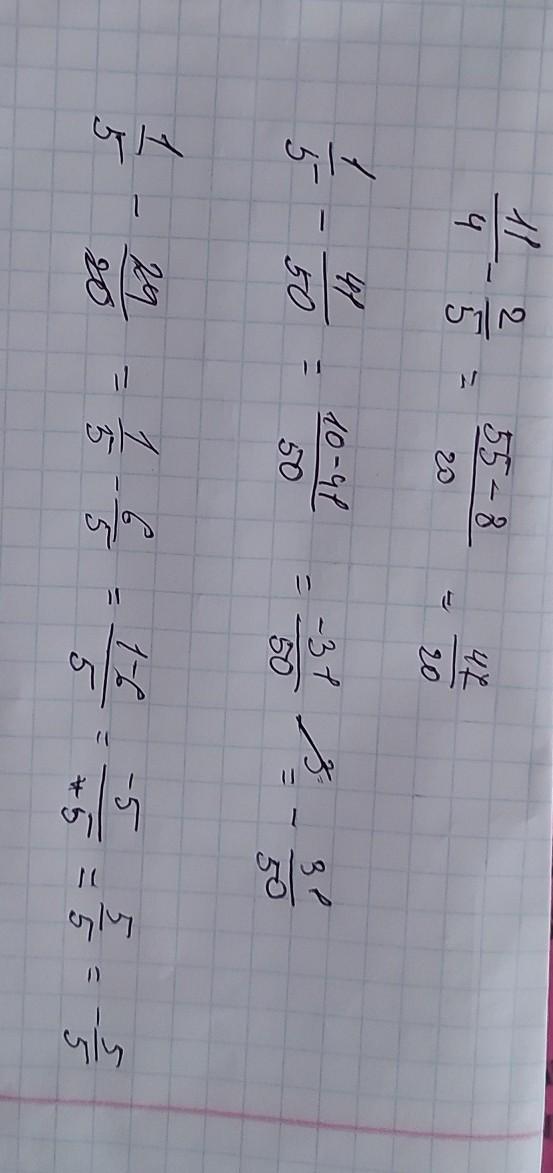 11/4 - 2/5 = 55-8/20 = 47/20
1/5 - 41/50 = 10-41/50 = -31/50 = - 31/50
1/5 - 24/20 = 1/5 - 6/5 = 1-6/5 = -5/*5 = 5/5 = -5/5